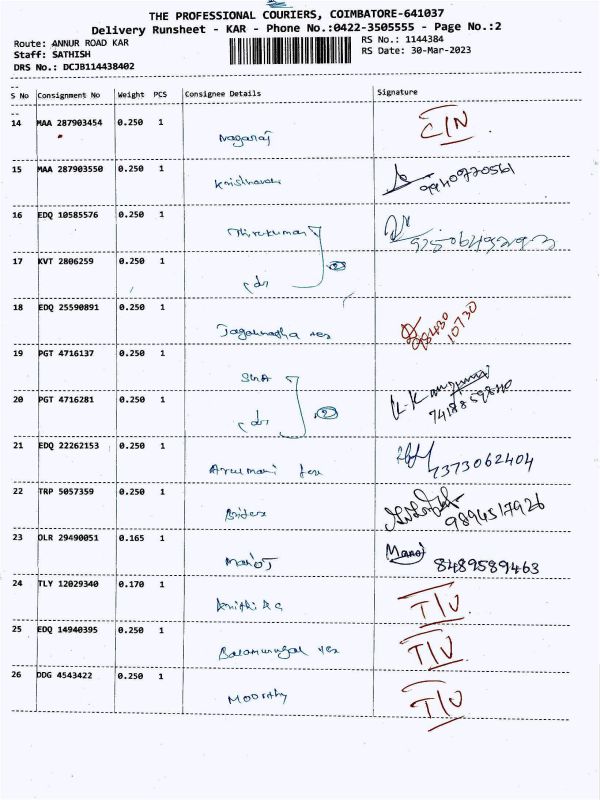 THE PROFESSIONAL COURIERS, COIMBATORE-641037
Delivery Runsheet - KAR - Phone No.:0422-3505555 - Page No.:2
Route: ANNUR ROAD KAR
RS No.: 1144384
Staff: SATHISH
RS Date: 30-Mar-2023
DRS No.: DCJB114438402
S No Consignment No Weight PCS Consignee Details Signature
14 MAA 287903454 0.250 1 Nagaraj C/N
15 MAA 287903550 0.250 1 9940970561
16 EDQ 10585576 0.250 1 Thirukumar
17 KVT 2806259 0.250 1 2
18 EDQ 25590891 0.250 1 98430 10730
19 PGT 4716137 0.250 1
20 PGT 4716281 0.250 1 2 7418859840
21 EDQ 22262153 0.250 1 7373062404
22 TRP 5057359 0.250 1 9894517926
23 OLR 29490051 0.165 1 Manoj Manoj 8489589463
24 TLY 12029340 0.170 1 T/U
25 EDQ 14940395 0.250 1 Balamurugan T/U
26 DDG 4543422 0.250 1 Moorthy T/U